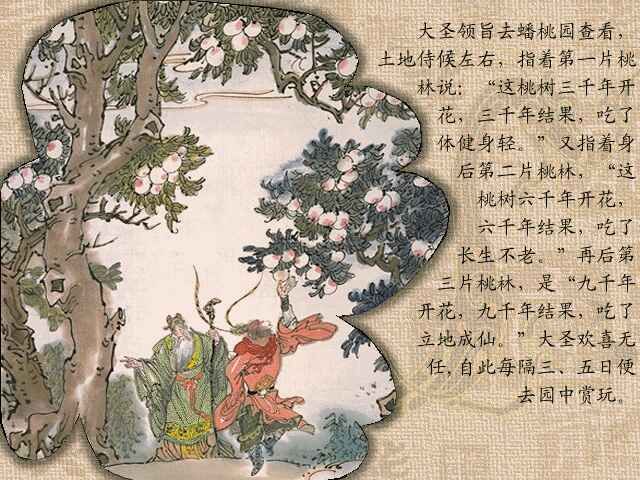 大圣领旨去蟠桃园查看，
土地侍候左右，指着第一片桃
林说：“这桃树三千年开
花，三千年结果，吃了
体健身轻。”又指着身
后第二片桃林，“这
桃树六千年开花，
六千年结果，吃了
长生不老。”再后第
三片桃林，是“九千年
开花，九千年结果，吃了
立地成仙。”大圣欢喜无
任,自此每隔三、五日便
去园中赏玩。